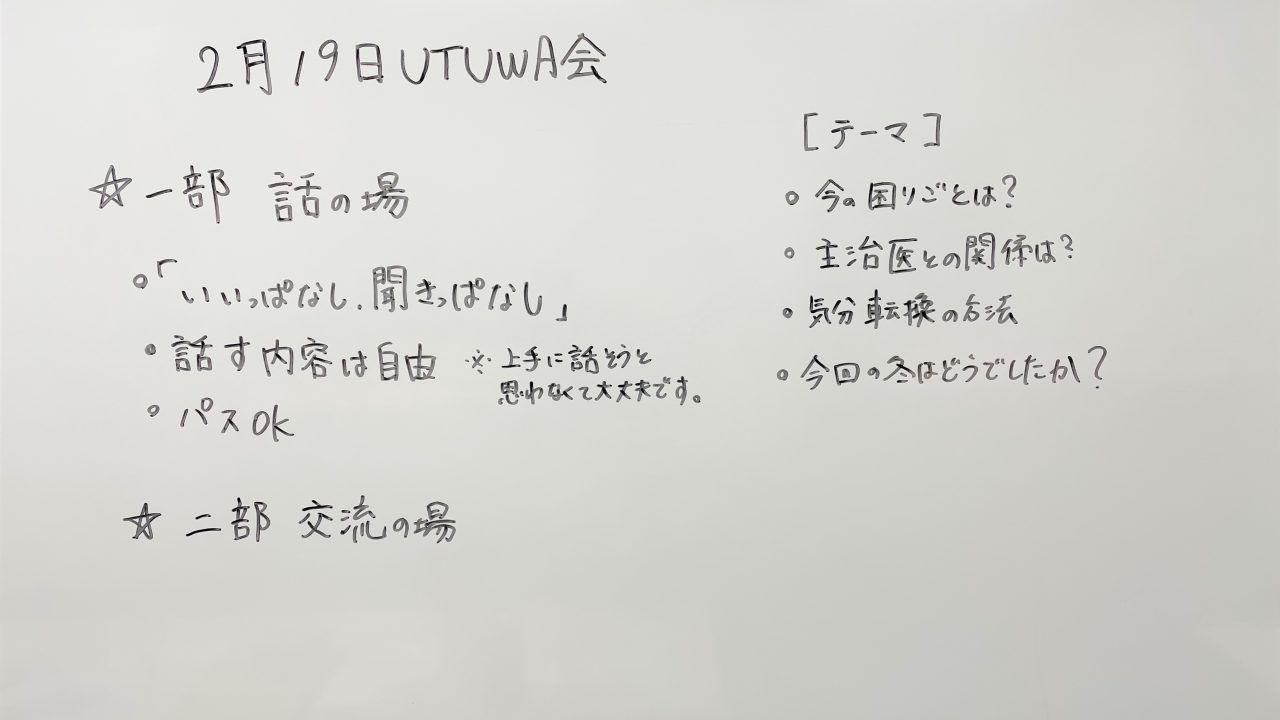 2月19日UTUWA会
☆一部 話の場
○「いいっぱなし.聞きっぱなし」
○話す内容は自由 ※上手に話そうと
思わなくて大丈夫です。
○パスOK
☆二部 交流の場
[テーマ]
○今の困りごとは?
○主治医との関係は?
○気分転換の方法
○今回の冬はどうでしたか?